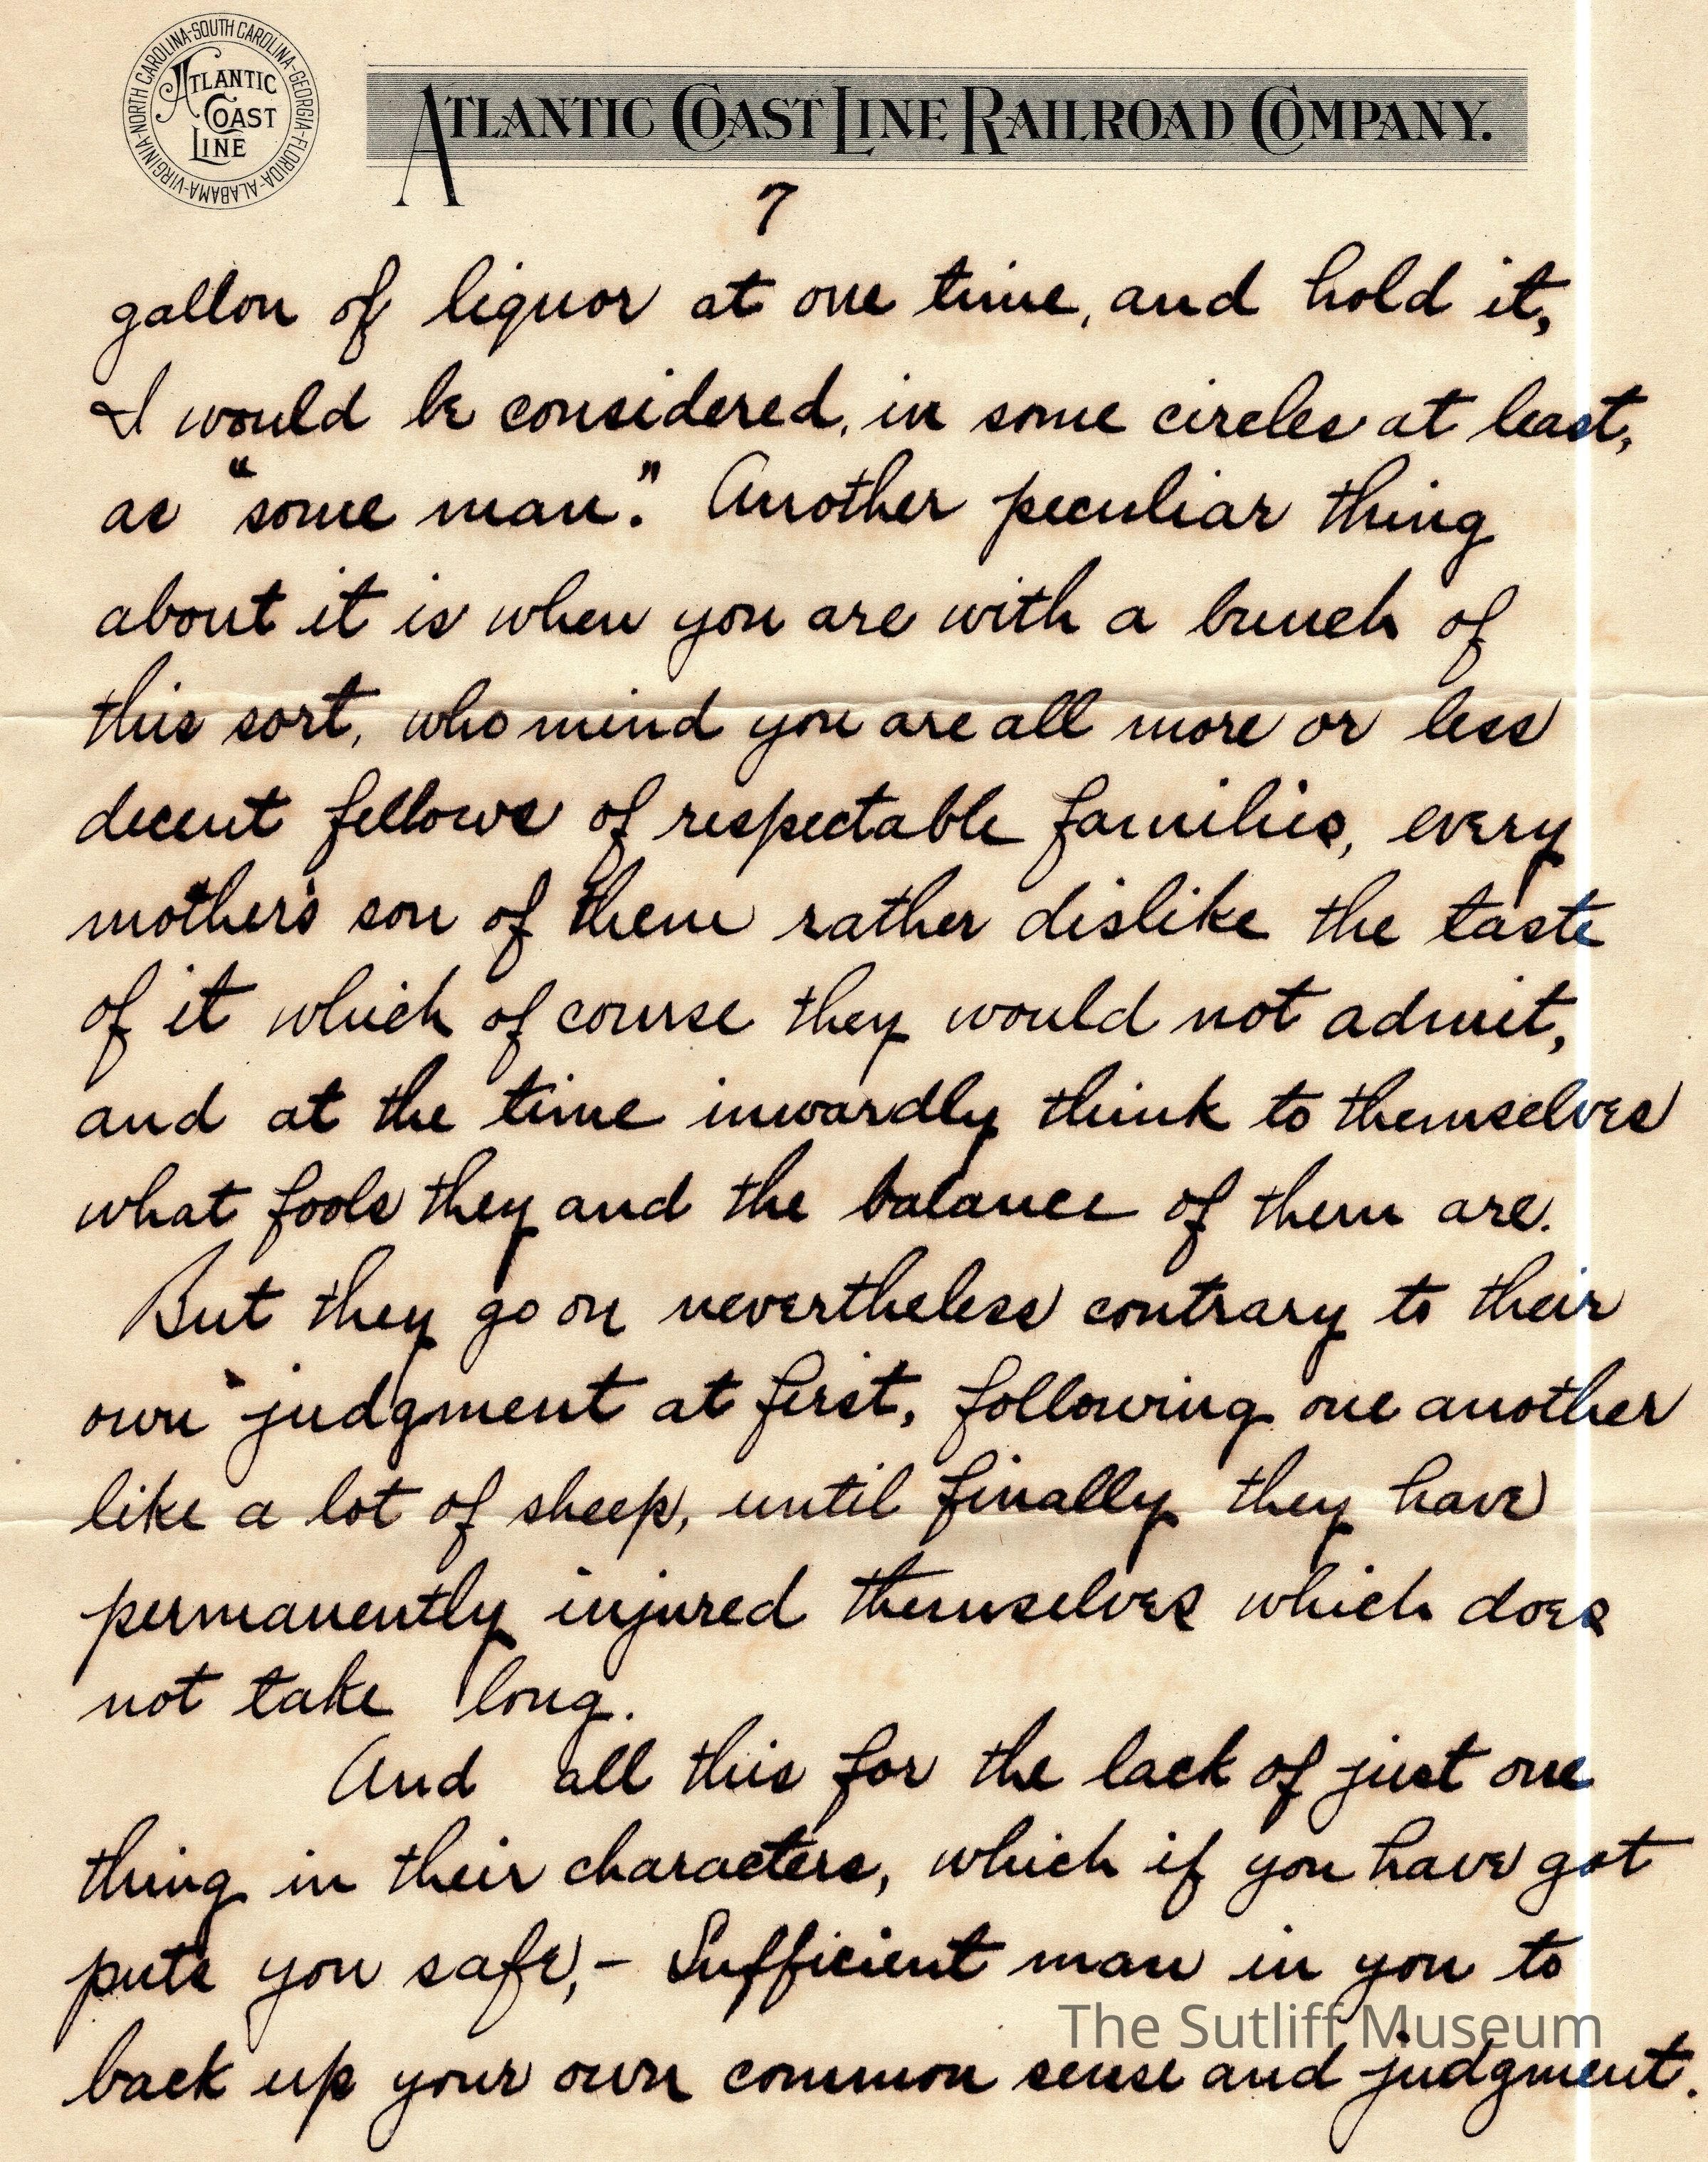 NORTH CAROLINA-SOUTH CAROLINA-GEORGIA-FLORIDA-ALABAMA-VIRGINIA-
ATLANTIC
COAST
LINE
ATLANTIC COAST LINE RAILROAD COMPANY.
7
gallon of liquor at one time, and hold it,
I would be considered, in some circles at least,
as "some man." Another peculiar thing
about it is when you are with a bunch of
this sort, who mind you are all more or less
decent fellows of respectable families, every
mother's son of them rather dislike the taste
of it which of course they would not admit,
and at the time inwardly think to themselves
what fools they and the balance of them are.
But they go on nevertheless contrary to their
own judgment at first, following one another
like a lot of sheep, until finally they have
permanently injured themselves which does
not take long.
And all this for the lack of just one
thing in their characters, which if you have got
puts you safe, - Sufficient man in you to
The Sutliff Museum
back up your own common sense and judgment.